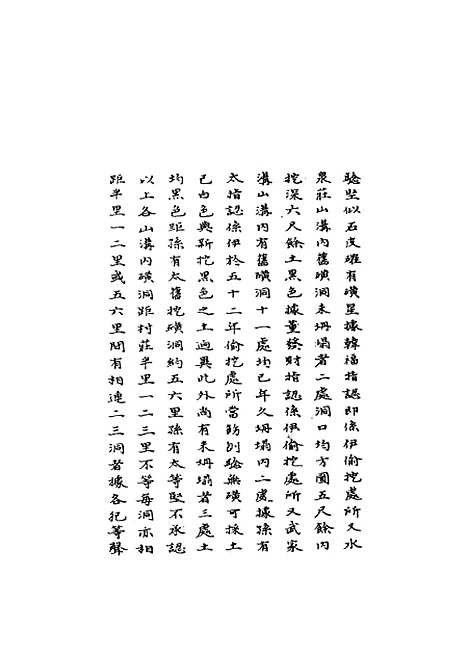 驗堅似石皮確有磺星據韓福指認即係伊偷挖處所又水
泉莊山溝內舊磺洞未坍塌者二處洞口均方圓五尺餘內
挖深六尺餘土黑色據董發財指認係伊偷挖處所又武家
溝山溝內有舊磺洞十一處均已年久坍塌內二處據孫有
太指認係伊於五十二年偷挖處所當飭刨驗無磺可採土
已白色與新挖黑色之土迥異此外尚有未坍塌者三處土
均黑色距孫有太舊挖磺洞約五六里孫有太等堅不承認
以上各山溝內磺洞距村莊半里一二三里不等每洞亦相
距半里一二里或五六里間有相連二三洞者據各犯等聲